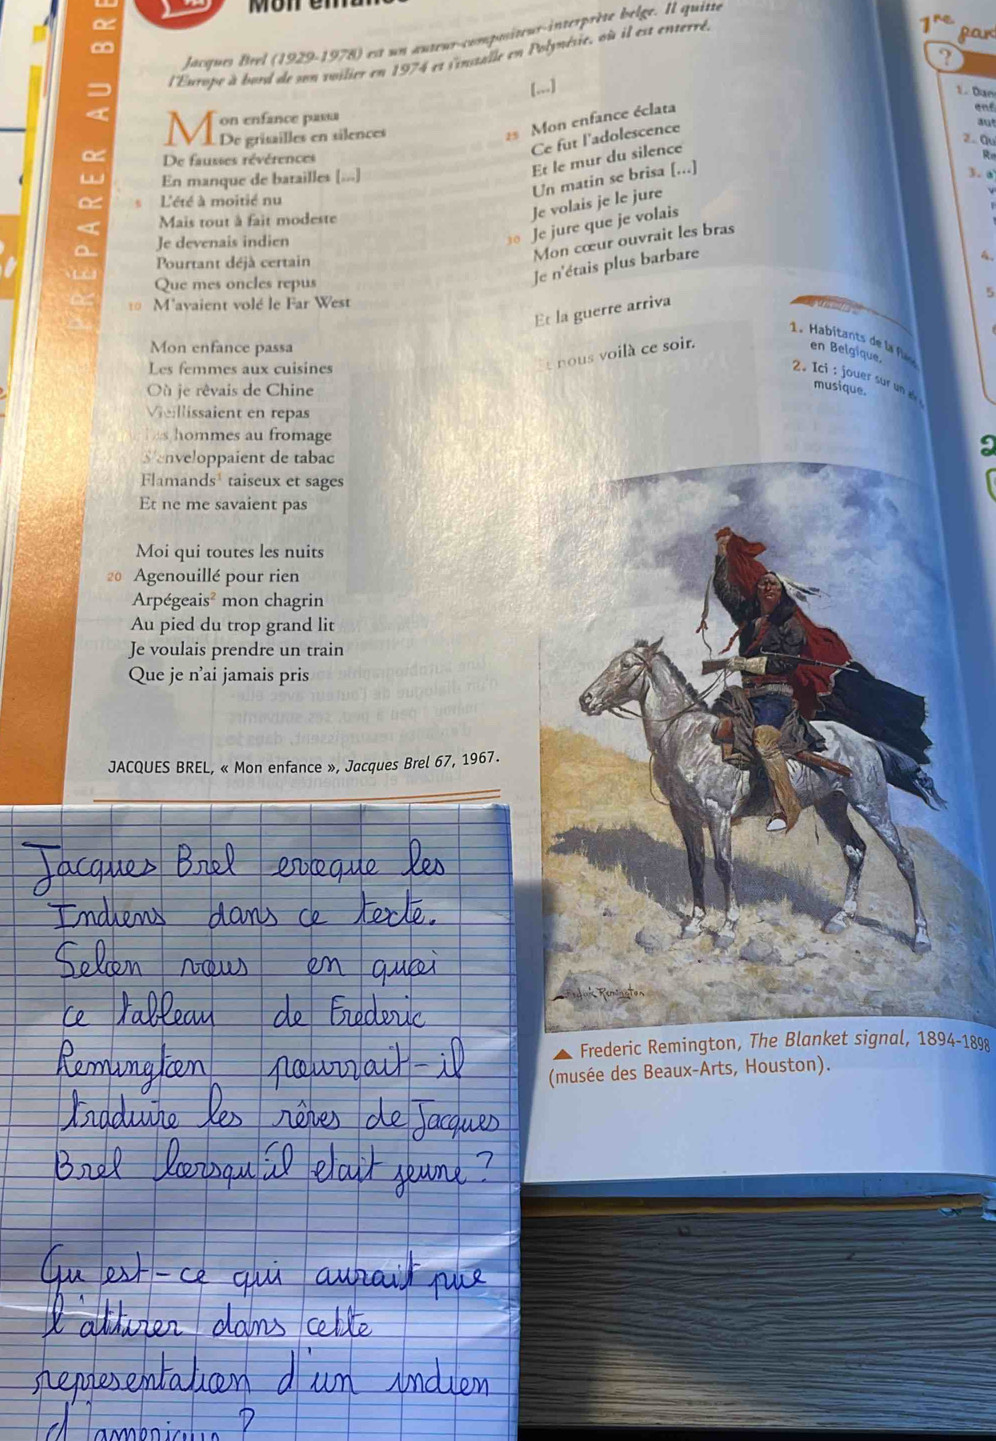 PRÉPARER AU BRE
Jacques Brel (1929-1978) est un auteur-compositeur-interprète belge. Il quitte
l'Europe à bord de son voilier en 1974 et s'installe en Polynésie, où il est enterré.
Mon enfance passa
De grisailles en silences
De fausses révérences
En manque de batailles [...]
5 L'été à moitié nu
Mais tout à fait modeste
Je devenais indien
Pourtant déjà certain
Que mes oncles repus
10 M'avaient volé le Far West
Mon enfance passa
Les femmes aux cuisines
Où je rêvais de Chine
Vieillissaient en repas
hommes au fromage
S'enveloppaient de tabac
Flamands¹ taiseux et sages
Et ne me savaient pas
Moi qui toutes les nuits
20 Agenouillé pour rien
Arpégeais² mon chagrin
Au pied du trop grand lit
Je voulais prendre un train
Que je n'ai jamais pris
[...]
25 Mon enfance éclata
Ce fut l'adolescence
Et le mur du silence
Un matin se brisa [...]
Je volais je le jure
30 Je jure que je volais
Mon cœur ouvrait les bras
Je n'étais plus barbare
Et la guerre arriva
nous voilà ce soir.
JACQUES BREL, « Mon enfance », Jacques Brel 67, 1967.
1. Habitants de la
en Belgique.
2. Ici : jouer sur un
musique.
Frederic Remington
▲ Frederic Remington, The Blanket signal, 1894-1898
(musée des Beaux-Arts, Houston).
1re par
?
1. Dan
enf
aut
2. Qu
Re
3. a
4.
5
2
Jacques Brel evoque les
Indiens dans ce texte.
Selon vous en quoi
ce tableau de Frederic
Remington pourrait-il
traduire les rêves de Jacques
Brel lorsqu'il etait jeune?
Qu est-ce qui aurait pue
l'attirer dans cette
representation d'un indien